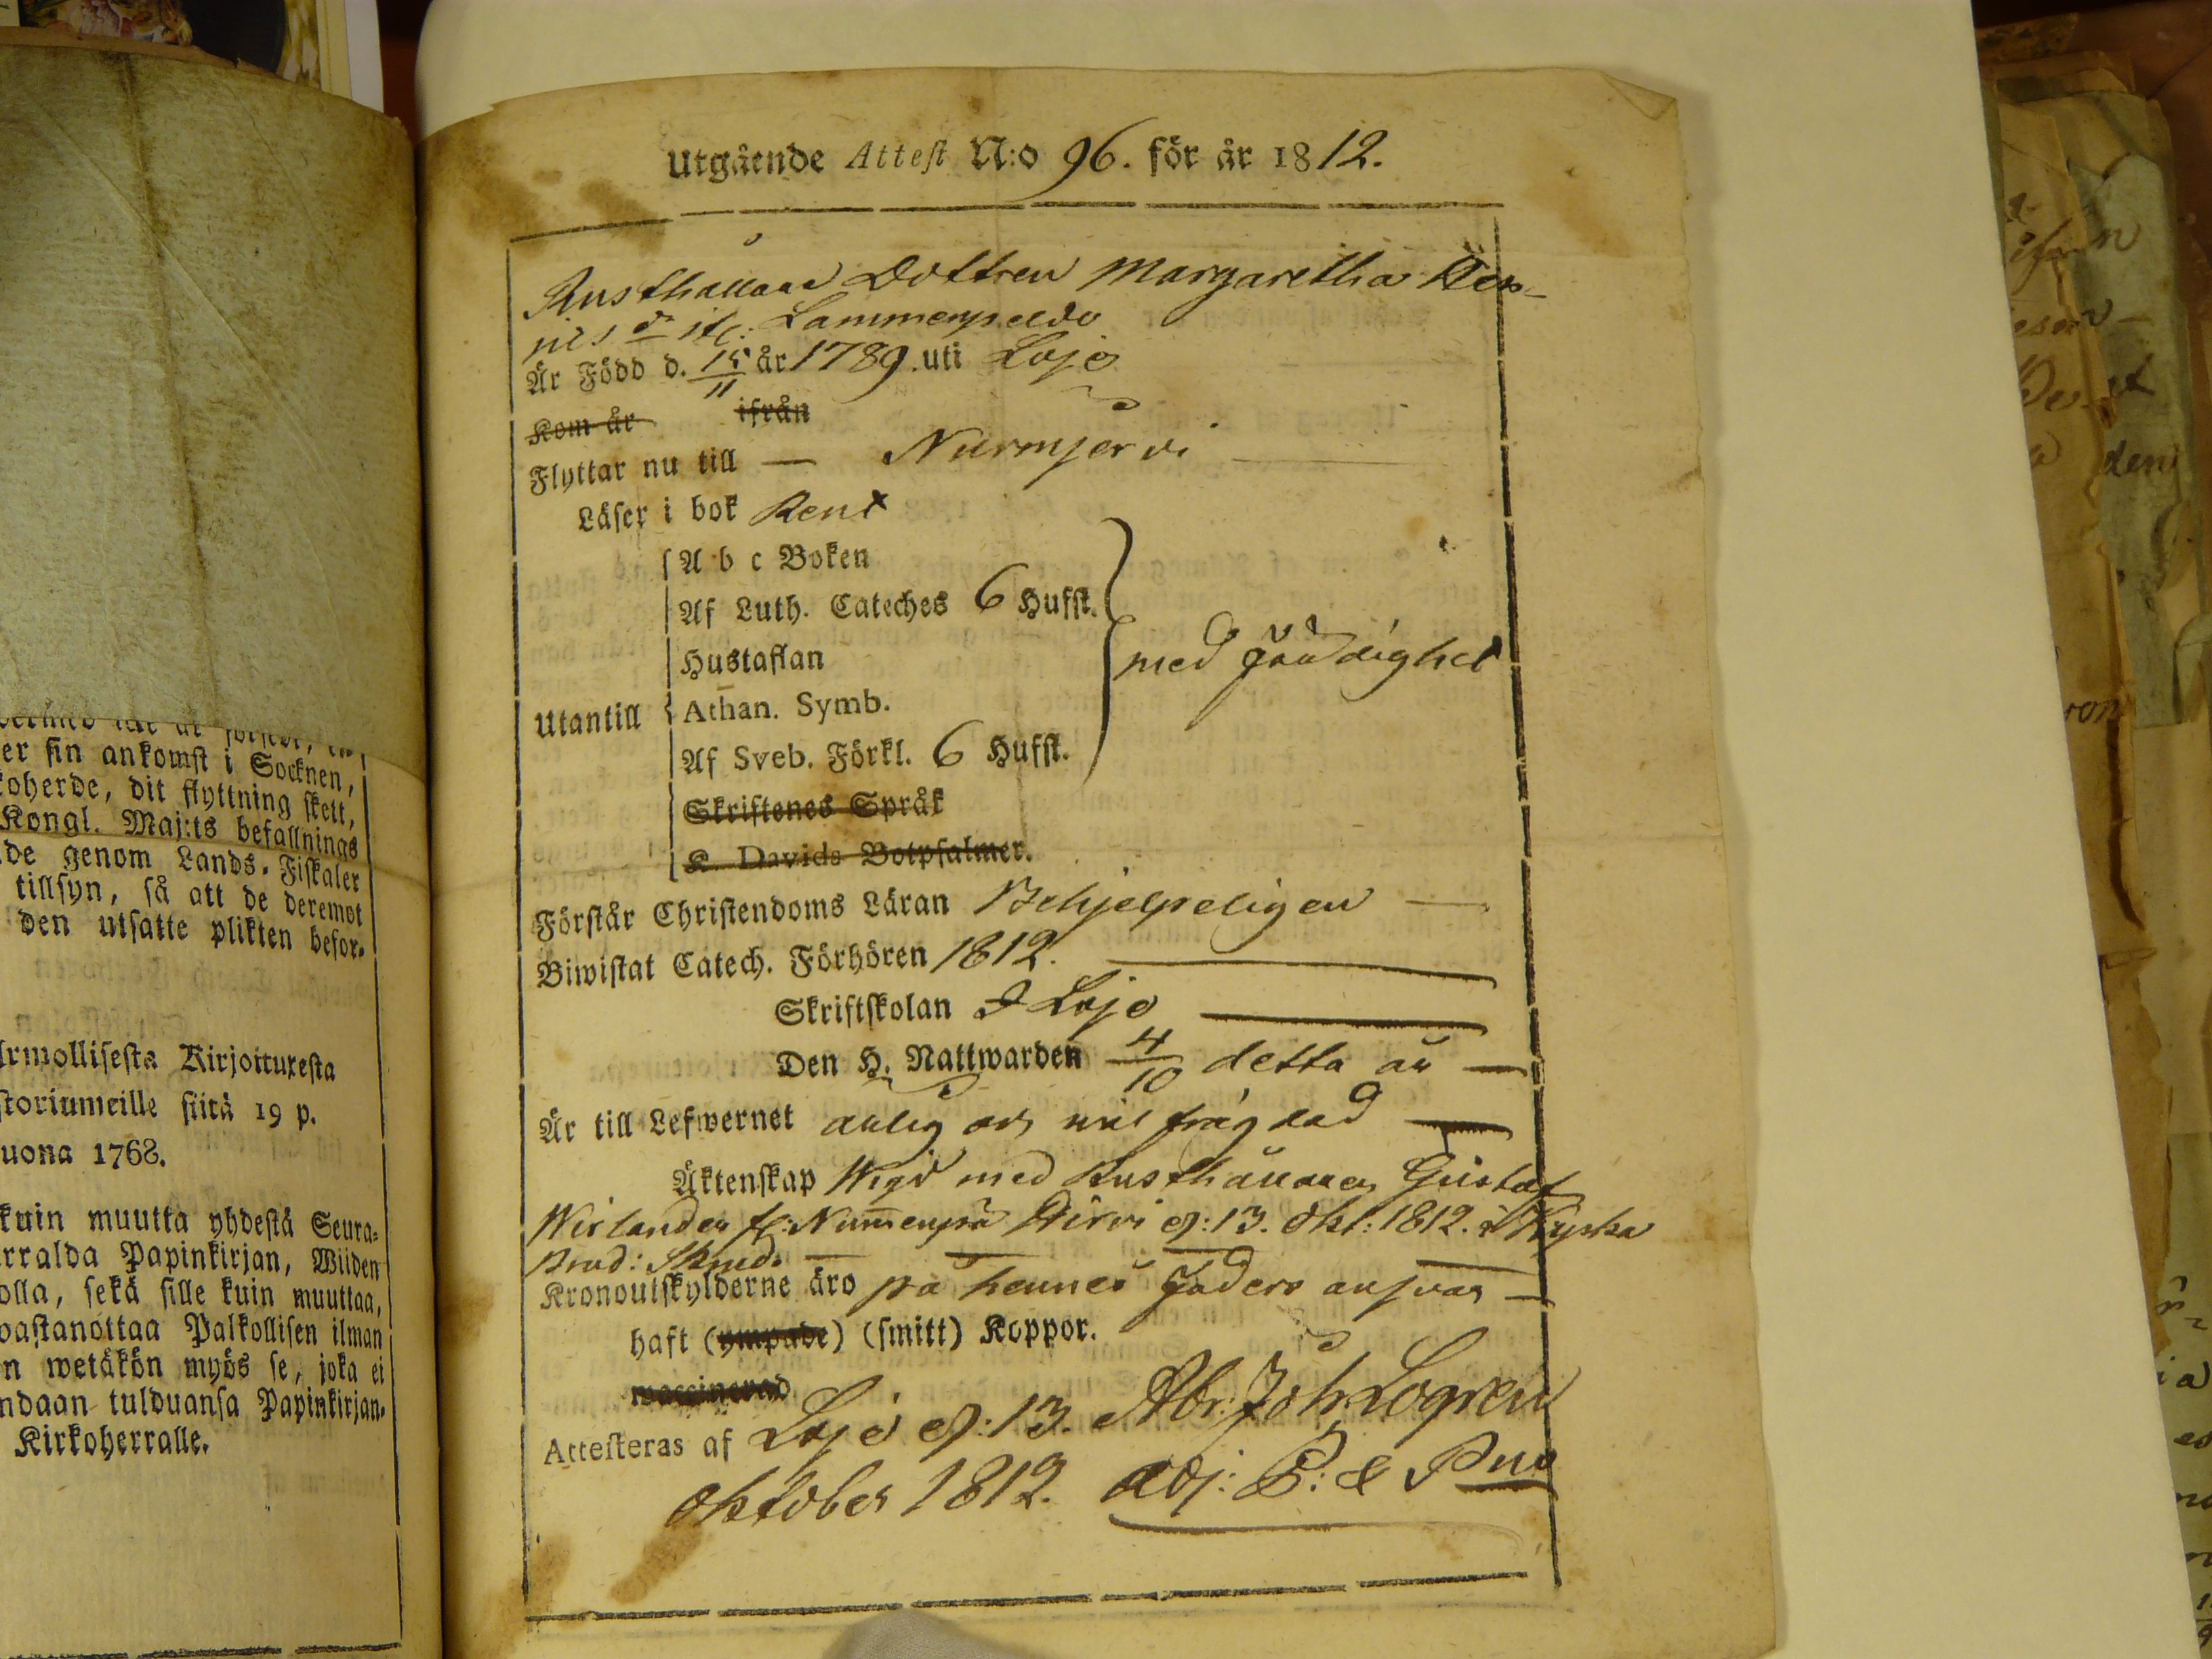 er sin ankomst i Socknen,
koherde, dit flyttning skett,
Kongl. Maj:ts befallnings
de genom Lands-Fiskaler
tillsyn, så att de deremot
den utsatte plikten befor-
Armollisesta Kirjoituxesta
storiumeille siitä 19 p.
uona 1768.
kuin muutta yhdestä Seura-
rralda Papinkirjan, Wiiden
olla, sekä sille kuin muuttaa,
wastanottaa Palkollisen ilman
n wetäkön myös se, joka ei
ndaan tulduansa Papinkirjan-
Kirkoherralle.
Utgående Attest N:o 96. för år 1812.
Rusthållare Dottren Margaretha
Lammenpeldo
Är Född d. 15/11 år 1789. uti Lojo
Kom år ifrån
Flyttar nu till — Nurmjervi
Läser i bok Rent
A b c Boken
Af Luth. Cateches 6 Hufst.
Hustaflan
med färdighet
Utantill Athan. Symb.
Af Sveb. Förkl. 6 Hufst.
Skriftenes Språk
K. Davids Botpsalmer.
Förstår Christendoms Läran Behjelpeligen —
Biwistat Catech. Förhören 1812.
Skriftskolan I Lojo
Den H. Nattwarden 4/10 detta år —
Är till Lefwernet ärlig och wäl frägdad
Äktenskap Wigd med Rusthållaren Gustaf
Wirlander fr: Nummenpä d: 13. Okt: 1812.
Kronoutskylderne äro på hennes Faders answar —
haft (ympade) (smitt) Koppor.
waccinerad
Attesteras af Lojo d: 13. Abr: Joh: Logren
Oktober 1812. Adj: